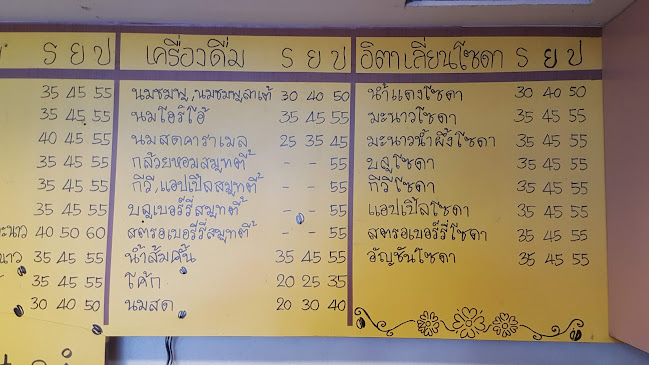 ร ย ป
35 45 55
35 45 55
40 45 55
35 45 55
35 45 55
35 45 55
40 50 60
35 45 55
35 45 55
30 40 50
เครื่องดื่ม ร ย ป
นมชมพู, นมชมพูลาเต้ 30 40 50
นมโอริโอ้ 35 45 55
นมสดคาราเมล 25 35 45
กล้วยหอมสมูทตี้ - - 55
กีวี,แอปเปิ้ลสมูทตี้ - - 55
บลูเบอร์รี่สมูทตี้ - - 55
สตรอเบอร์รี่สมูทตี้ - - 55
น้ำส้มคั้น 35 45 55
โค้ก 20 25 35
นมสด 20 30 40
อิตาเลี่ยนโซดา ร ย ป
น้ำแดงโซดา 30 40 50
มะนาวโซดา 35 45 55
มะนาวน้ำผึ้งโซดา 35 45 55
บลูโซดา 35 45 55
กีวีโซดา 35 45 55
แอปเปิ้ลโซดา 35 45 55
สตรอเบอร์รี่โซดา 35 45 55
อัญชันโซดา 35 45 55